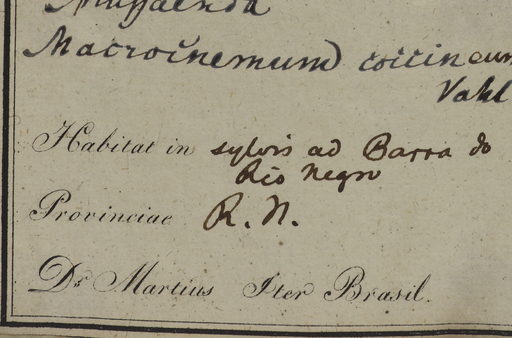 Mussaenda
Macrocnemum coccineum
Vahl
Habitat in sylvis ad Barra do
Rio Negro
Provinciae R. N.
Dr Martius Iter Brasil.